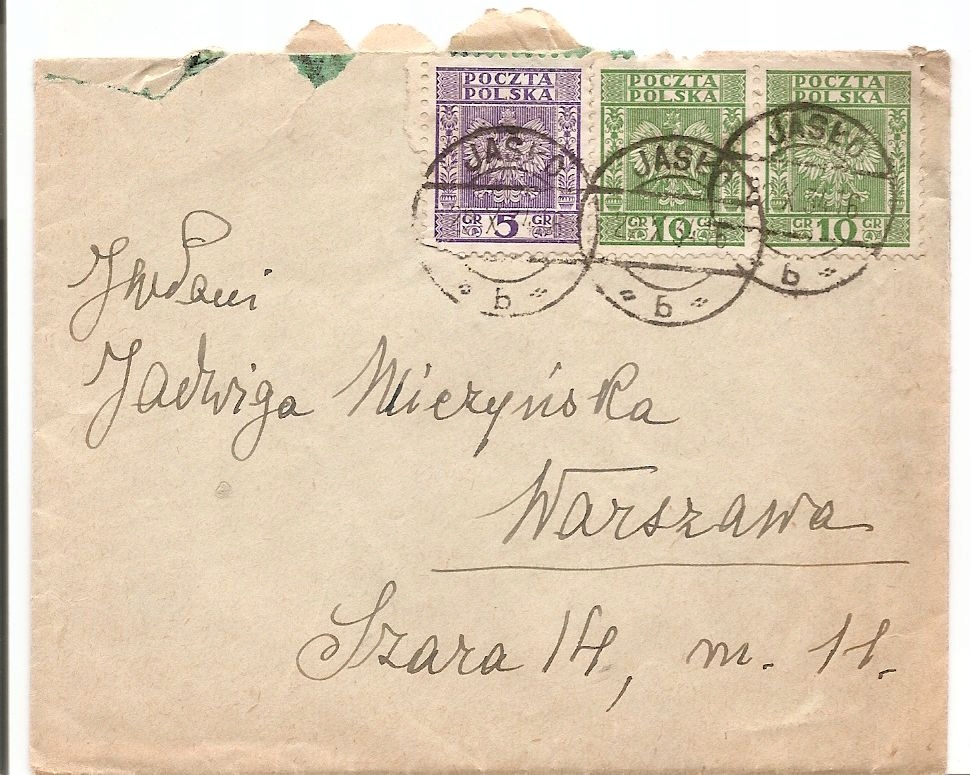 POCZTA POLSKA
GR 5 GR
POCZTA POLSKA
GR 10 GR
POCZTA POLSKA
GR 10 GR
JASŁO
b
JASŁO
b
JASŁO
b
JWPani
Jadwiga Mierzyńska
Warszawa
Szara 14, m. 11.